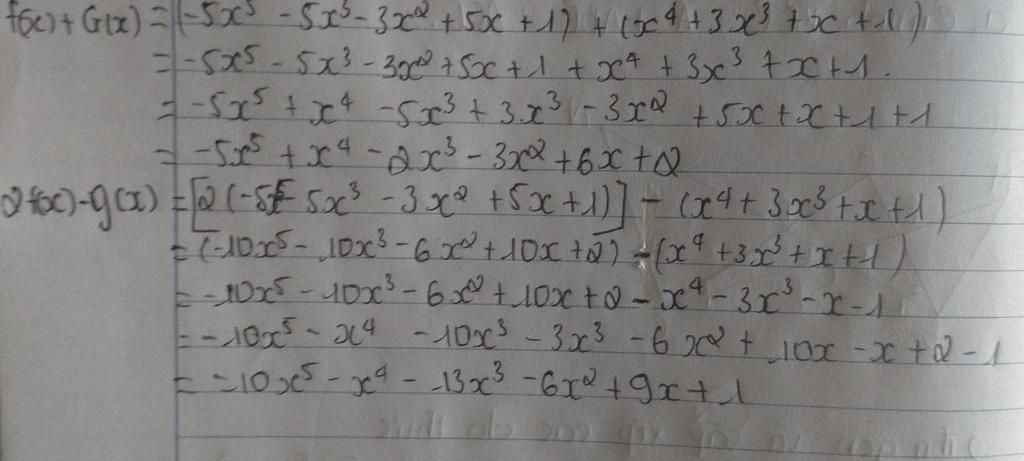 f(x) + G(x) = (-5x⁵ - 5x³ - 3x² + 5x + 1) + (x⁴ + 3x³ + x + 1)
= -5x⁵ - 5x³ - 3x² + 5x + 1 + x⁴ + 3x³ + x + 1.
= -5x⁵ + x⁴ - 5x³ + 3x³ - 3x² + 5x + x + 1 + 1
= -5x⁵ + x⁴ - 2x³ - 3x² + 6x + 2
2f(x) - g(x) = [2(-5x⁵ - 5x³ - 3x² + 5x + 1)] - (x⁴ + 3x³ + x + 1)
= (-10x⁵ - 10x³ - 6x² + 10x + 2) - (x⁴ + 3x³ + x + 1)
= -10x⁵ - 10x³ - 6x² + 10x + 2 - x⁴ - 3x³ - x - 1
= -10x⁵ - x⁴ - 10x³ - 3x³ - 6x² + 10x - x + 2 - 1
= -10x⁵ - x⁴ - 13x³ - 6x² + 9x + 1